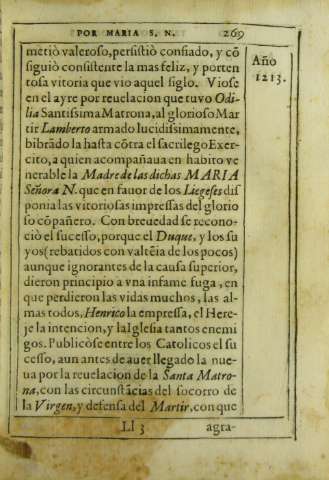 POR MARIA S. N. 269
Año
1213.
metiò valeroso, persistiò confiado, y cõ
siguiò consistente la mas feliz, y porten
tosa vitoria que vio aquel siglo. Viose
en el ayre por reuelacion que tuvo Odi-
lia Santissima Matrona, al glorioso Mar
tir Lamberto armado lucidissimamente,
bibrãdo la hasta cõtra el sacrilego Exer-
cito, a quien acompañaua en habito ve
nerable la Madre de las dichas MARIA
Señora N. que en fauor de los Liegeses dis
ponia las vitoriosas impressas del glorio
so cõpañero. Con breuedad se recono-
ciò el sucesso, porque el Duque, y los su
yos (rebatidos con valtẽia de los pocos)
aunque ignorantes de la causa superior,
dieron principio a vna infame fuga, en
que perdieron las vidas muchos, las al-
mas todos, Henrico la empressa, el Here-
je la intencion, y la Iglesia tantos enemi
gos. Publicòse entre los Catolicos el su
cesso, aun antes de auer llegado la nue-
ua por la reuelacion de la Santa Matro-
na, con las circunstãcias del socorro de
la Virgen, y defensa del Martir, con que
Ll 3 agra-